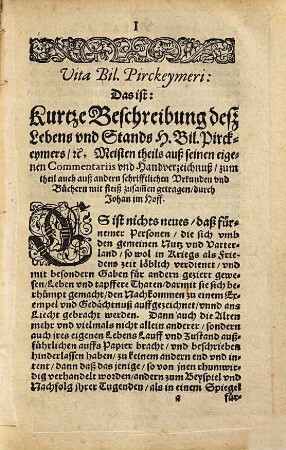 1
Vita Bil. Pirckeymeri:
Das ist:
Kurtze Beschreibung desz
Lebens vnd Stands H. Bil. Pirck-
eymers/ꝛc. Meisten theils auß seinen eige-
nen Commentariis vnd Handverzeichnuß/zum
theil auch auß andern schrifftlichen Vrkunden vnd
Büchern mit fleiß zusam̃en getragen/durch
Johan im Hoff.
ES ist nichts neues/daß für-
nemer Personen/die sich vmb
den gemeinen Nutz vnd Vatter-
land/so wol in Kriegs als Frie-
dens zeit löblich verdienet/vnd
mit besondern Gaben für andern geziert gewe-
sen/Leben vnd tapffere Thaten/darmit sie sich be-
rhümpt gemacht/den Nachkom̃nen zu einem Ex-
empel vnd Gedächtnuß auffgezeichnet/vnnd ans
Liecht gebracht werden. Dann auch die Alten
mehr vnd vielmals nicht allein anderer/sondern
auch jres eigenen Lebens Lauff vnd Zustand auß-
führlichen auffs Papier bracht/vnd beschrieben
hinderlassen haben/zu keinem andern end vnd in-
tent/dann daß das jenige/so von jnen rhumwir-
dig verhandelt worden/andern zum Beyspiel vnd
Nachfolg jhrer Tugenden/als in einem Spiegel
a für-